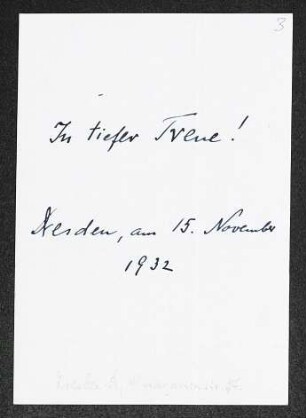 3
In tiefer Treue!
Dresden, am 15. November
1932